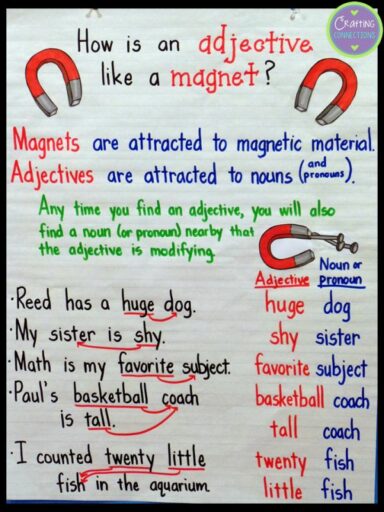 Crafting
CONNECTIONS
How is an adjective
like a magnet?
Magnets are attracted to magnetic material.
Adjectives are attracted to nouns (and pronouns).
Any time you find an adjective, you will also
find a noun (or pronoun) nearby that
the adjective is modifying.
Adjective Noun or pronoun
• Reed has a huge dog. huge dog
• My sister is shy. shy sister
• Math is my favorite subject. favorite subject
• Paul's basketball coach basketball coach
is tall. tall coach
• I counted twenty little twenty fish
fish in the aquarium. little fish